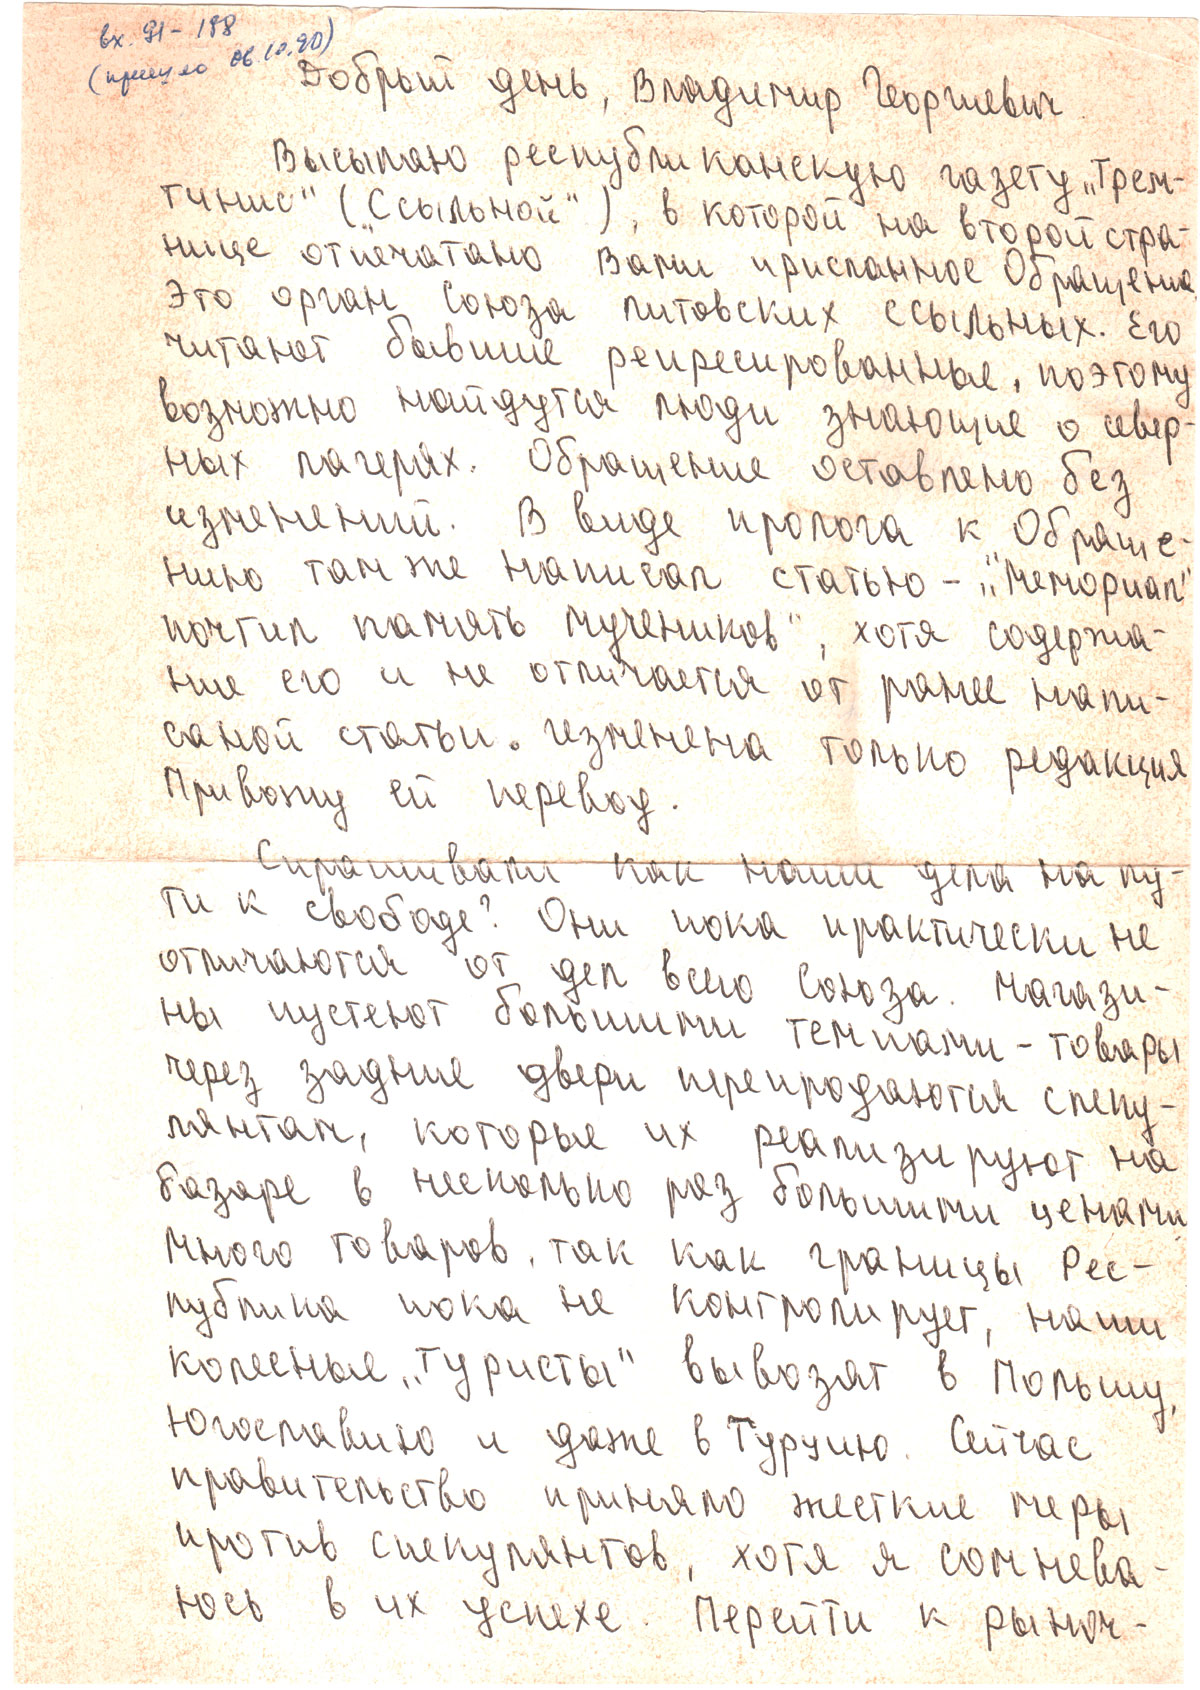 вх. 91-188
(пришло 06.10.90)
Добрый день, Владимир Георгиевич
Высылаю республиканскую газету „Трем-
тинис" („Ссыльной"), в которой на второй стра-
нице отпечатано Вами присланное Обращение.
Это орган Союза литовских ссыльных. Его
читают бывшие репресированные, поэтому
возможно найдутся люди знающие о север-
ных лагерях. Обращение оставлено без
изменений. В виде пролога к Обраще-
нию там же написал статью – „"Мемориал"
почтил память мучеников", хотя содержа-
ние его и не отличается от ранее напи-
саной статьи. Изменена только редакция
Привожу ей перевод.
Спрашивали как наши дела на пу-
ти к свободе? Они пока практически не
отличаются от дел всего Союза. Магази-
ны пустеют большими темпами – товары
через задние двери перепродаются спеку-
лянтам, которые их реализируют на
базаре в несколько раз большими ценами
Много товаров, так как границы Рес-
публика пока не контролирует, наши
колесные „туристы" вывозят в Польшу,
Югославию и даже в Турцию. Сейчас
правительство приняло жесткие меры
против спекулянтов, хотя я сомнева-
юсь в их успехе. Перейти к рыноч-